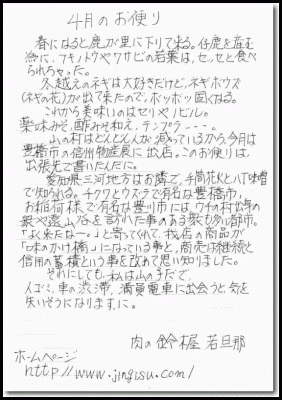 4月のお便り
春になると鹿が里に下りて来る。仔鹿を産む
為に、フキノトウやワサビの若葉は、セッセと食べ
られちゃった。
冬越えのネギは大好きだけど、ネギボウズ
(ネギの花)が出て来たので、ボツボツ固くなる。
これから美味いのはセリやノビル。
薬味みそ、酢みそ和え、テンプラ---。
山の村はどんどん人が減っているから、今月は
豊橋市の信州物産展に出店。このお便りは、
出張先で書いたんだに。
愛知県三河地方はお隣で、手筒花火と八丁味噌
で知られる。チクワとウズラで有名な豊橋市、
お稲荷様で有名な豊川市には、ウチの村出身の
衆や遠山谷を訪れた事のある衆も多い都市。
「よく来たなー。」と寄ってくれて、我店の商品が
「味のかけ橋」になっている事と、商売は継続と
信用の蓄積という事を改めて思い知りました。
それにしても、私は山の子だで、
人ゴミ、車の渋滞、満員電車に出会うと気を
失いそうになりますに。
肉の鈴木屋 若旦那
ホームページ
http://www.jingisu.com/